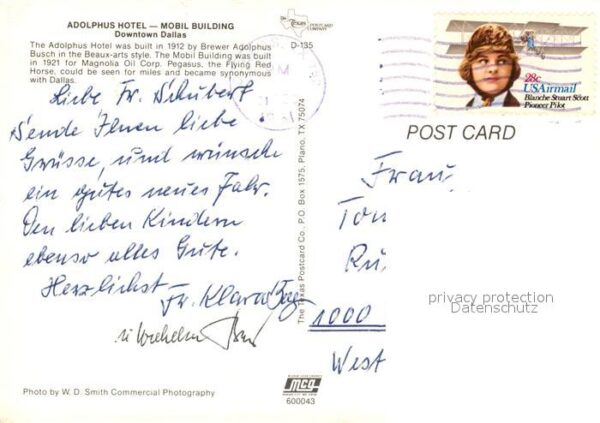 ADOLPHUS HOTEL — MOBIL BUILDING
Downtown Dallas
The Adolphus Hotel was built in 1912 by Brewer Adolphus
Busch in the Beaux-arts style. The Mobil Building was built
in 1921 for Magnolia Oil Corp. Pegasus, the Flying Red
Horse, could be seen for miles and became synonymous
with Dallas.
Texas
POSTCARD
COMPANY
D-135
28c
USAirmail
Blanche Stuart Scott
Pioneer Pilot
POST CARD
Liebe Fr. Schubert
Sende Ihnen liebe
Grüsse, und wünsche
ein gutes neues Jahr.
Den lieben Kindern
ebenso alles Gute.
Herzlichst Fr. Klara
u Wilhelm
The Texas Postcard Co., P.O. Box 1575, Plano, TX 75074
Frau
Ton
Ru
1000
West
privacy protection
Datenschutz
Photo by W. D. Smith Commercial Photography
mcg
600043